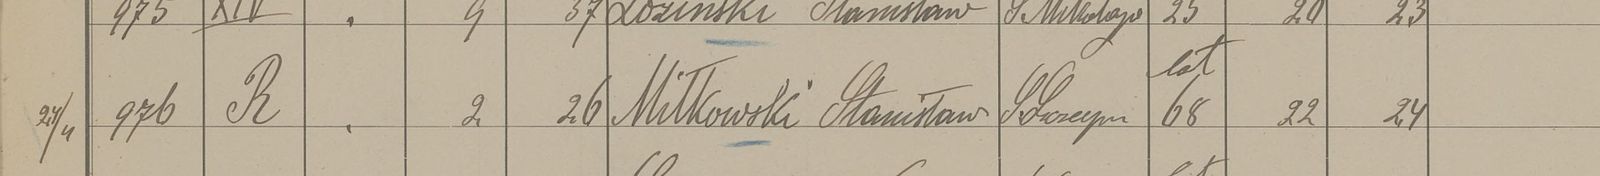 975 XIV . 9 57 Łoziński Stanisław S. Mikołaja 25 20 23
lat
24/4 976 R . 2 26 Miłkowski Stanisław 68 22 24